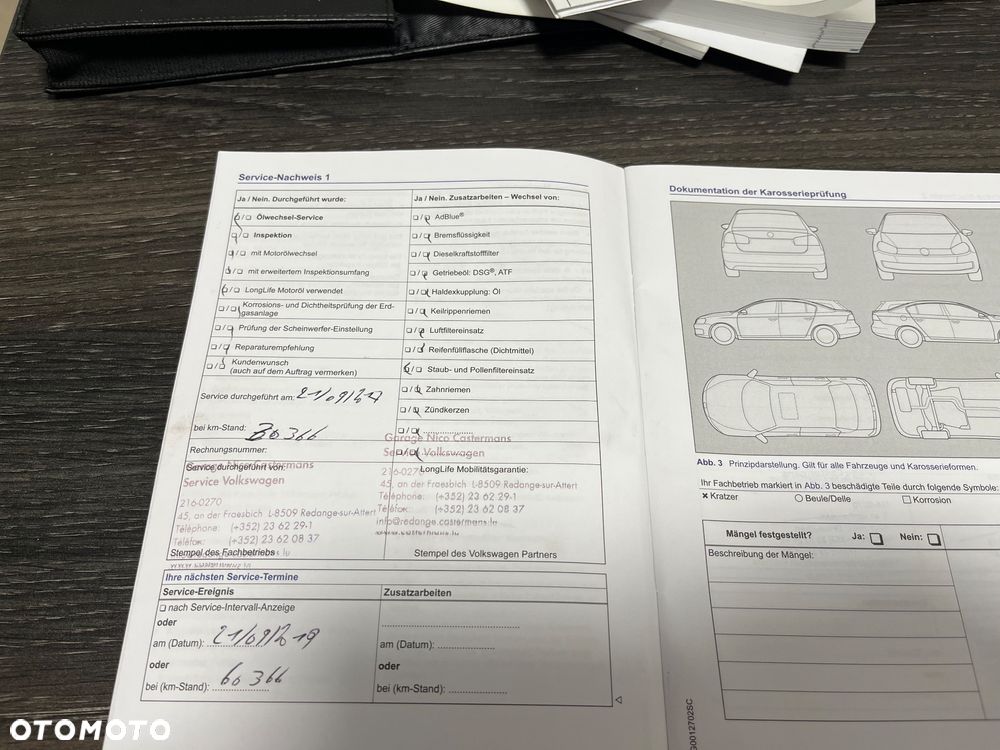 Service-Nachweis 1
Ja / Nein. Durchgeführt wurde:
Ölwechsel-Service
Inspektion
mit Motorölwechsel
mit erweitertem Inspektionsumfang
LongLife Motoröl verwendet
Korrosions- und Dichtheitsprüfung der Erd-
gasanlage
Prüfung der Scheinwerfer-Einstellung
Reparaturempfehlung
Kundenwunsch
(auch auf dem Auftrag vermerken)
Service durchgeführt am:
bei km-Stand: 30 366
Rechnungsnummer:
Service durchgeführt von:
Garage Nico Castermans
Service Volkswagen
216-0270
45, an der Fraesbich L-8509 Redange-sur-Attert
Téléphone: (+352) 23 62 29-1
Téléfax: (+352) 23 62 08 37
Stempel des Fachbetriebs
Ja / Nein. Zusatzarbeiten – Wechsel von:
AdBlue®
Bremsflüssigkeit
Dieselkraftstofffilter
Getriebeöl: DSG®, ATF
Haldexkupplung: Öl
Keilrippenriemen
Luftfiltereinsatz
Reifenfüllflasche (Dichtmittel)
Staub- und Pollenfiltereinsatz
Zahnriemen
Zündkerzen
Garage Nico Castermans
Service Volkswagen
216-0270
LongLife Mobilitätsgarantie:
45, an der Fraesbich L-8509 Redange-sur-Attert
Téléphone: (+352) 23 62 29-1
Téléfax: (+352) 23 62 08 37
info@redange.castermans.lu
Stempel des Volkswagen Partners
Ihre nächsten Service-Termine
Service-Ereignis
nach Service-Intervall-Anzeige
oder
am (Datum): 21/09/2019
oder
bei (km-Stand): 60 366
Zusatzarbeiten
am (Datum):
oder
bei (km-Stand):
Dokumentation der Karosserieprüfung
Abb. 3 Prinzipdarstellung. Gilt für alle Fahrzeuge und Karosserieformen.
Ihr Fachbetrieb markiert in Abb. 3 beschädigte Teile durch folgende Symbole:
× Kratzer
Beule/Delle
Korrosion
Mängel festgestellt?
Ja:
Nein:
Beschreibung der Mängel:
OTOMOTO